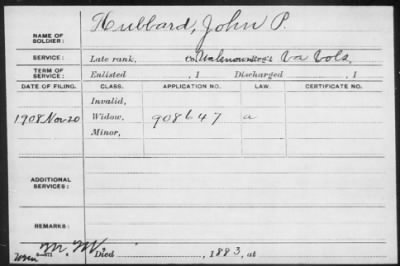 NAME OF SOLDIER: Hubbard, John P.
SERVICE: Late rank, Co. Unknown Reg't Va Vols.
TERM OF SERVICE: Enlisted , 1 Discharged , 1
DATE OF FILING. CLASS. APPLICATION NO. LAW. CERTIFICATE NO.
Invalid,
1908 Nov 20 Widow, 908647 a
Minor,
ADDITIONAL SERVICES:
REMARKS:
Died , 1883, at